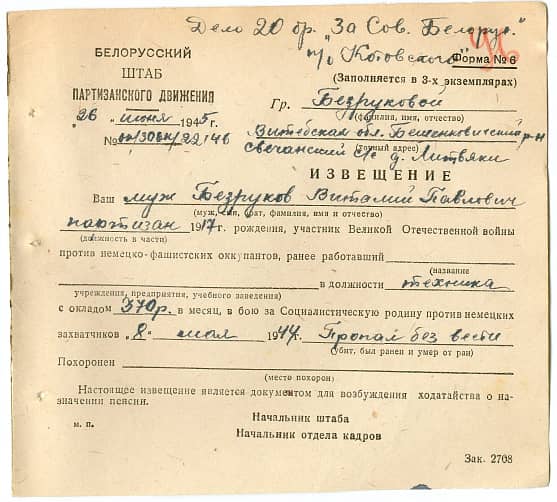 Дело 20 бр. "За Сов. Белорус."
п/о "Котовского"
Форма № 6
(Заполняется в 3-х экземплярах)
БЕЛОРУССКИЙ
ШТАБ
ПАРТИЗАНСКОГО ДВИЖЕНИЯ
"26" июня 1945 г.
№
Гр. Безруковой
(фамилия, имя, отчество)
Витебская обл. Бешенковичский р-н
(точный адрес)
Свечанский с/с д. Литвяки
ИЗВЕЩЕНИЕ
Ваш муж Безруков Виталий Павлович
(муж, сын, брат, фамилия, имя и отчество)
партизан 1917 г. рождения, участник Великой Отечественной войны
(должность в части)
против немецко-фашистских оккупантов, ранее работавший
(название
в должности техника
учреждения, предприятия, учебного заведения)
с окладом 370 р. в месяц, в бою за Социалистическую родину против немецких
захватчиков "8" мая 1944 г. Пропал без вести
(убит, был ранен и умер от ран)
Похоронен
(место похорон)
Настоящее извещение является документом для возбуждения ходатайства о на-
значении пенсии.
Начальник штаба
м. п.
Начальник отдела кадров
Зак. 2708